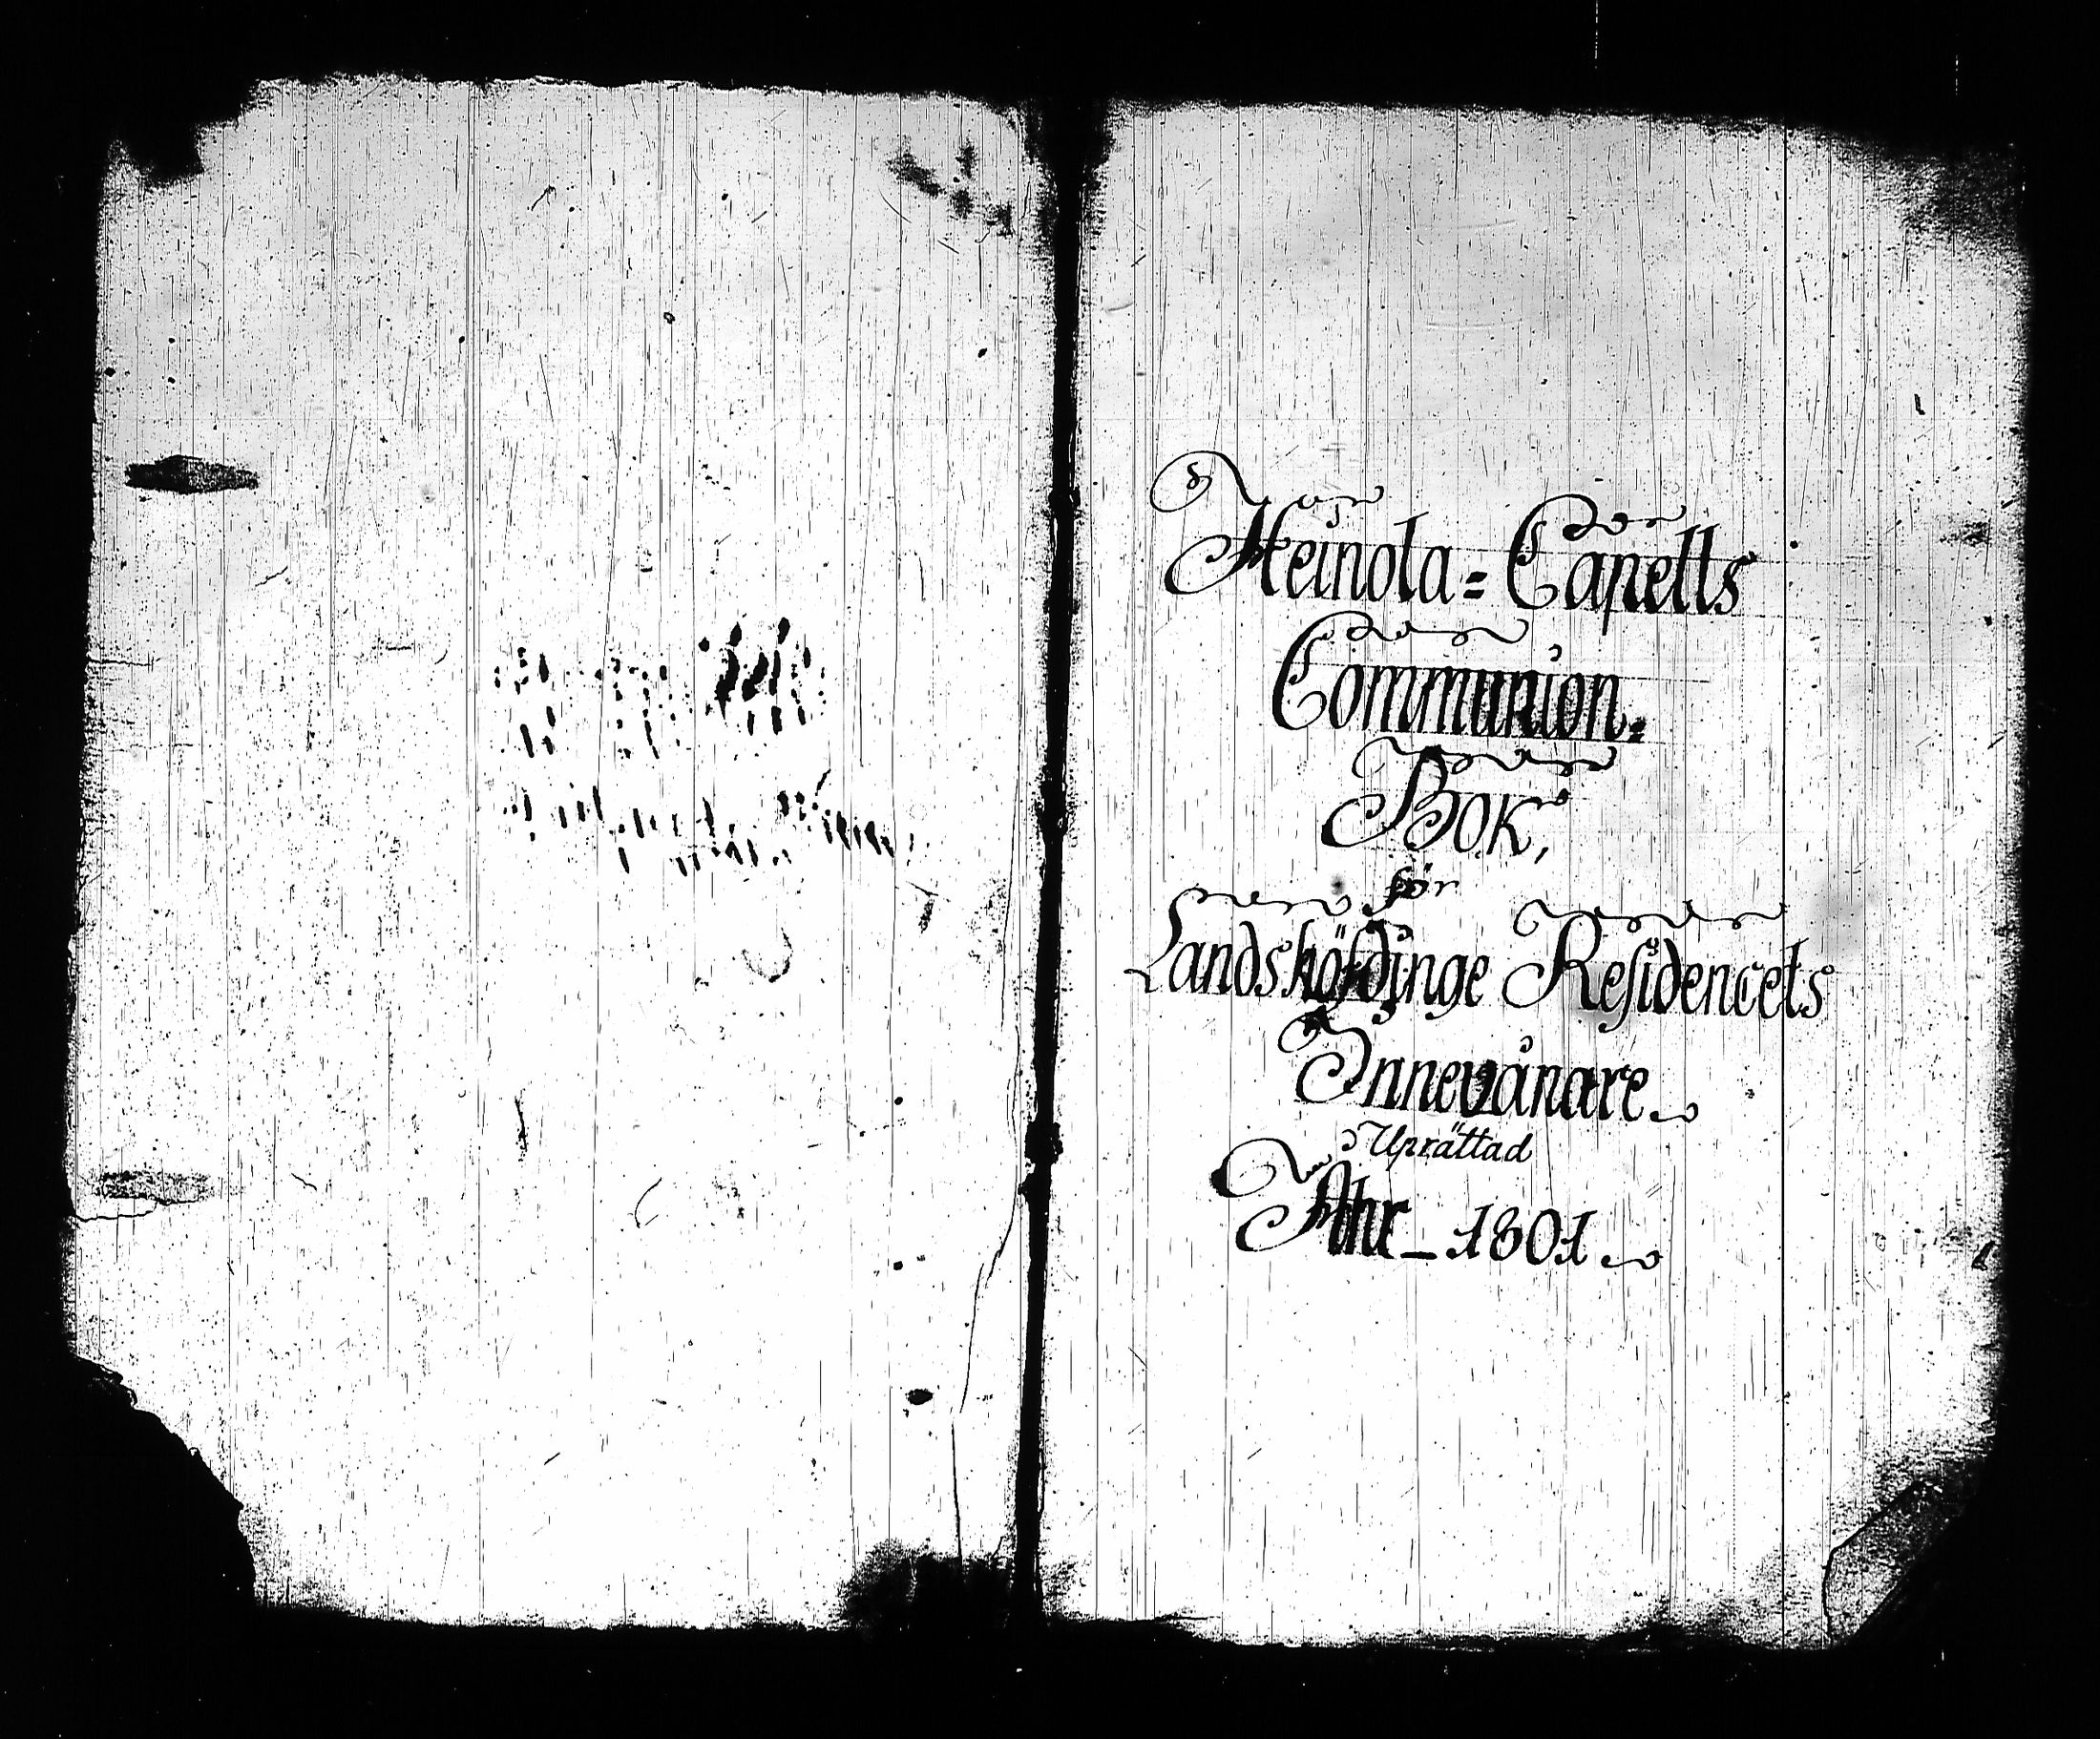 Heinola = Capells
Communion =
Bok,
för
Landshöfdinge Residencets
Innevånare.
Uprättad
Åhr _ 1801.